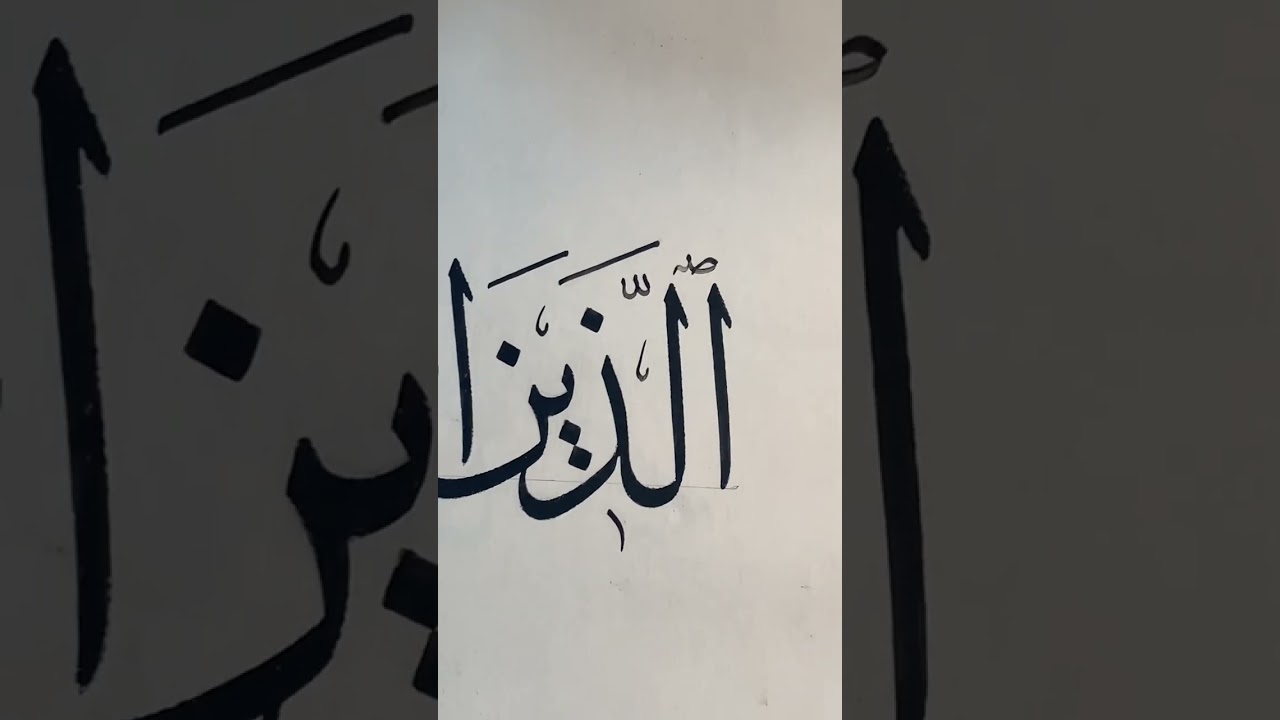 ٱلَّذِينَ ا